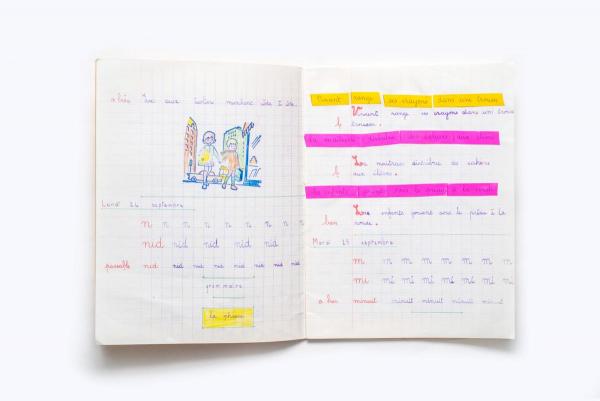 deux marchent côte à côte.
Lundi 24 septembre
n n n n n n n n
nid nid nid nid
passable nid nid nid nid nid nid nid
grammaire
la phrase
Vincent range ses crayons dans une trousse
Vincent range ses crayons dans une
trousse.
La maîtresse distribue des cahiers aux élèves
La maîtresse distribue des cahiers
aux élèves.
Les enfants jouent sous le préau à la ronde
Les enfants jouent sous le préau à la
bien ronde.
Mardi 25 septembre
m m m m m m m
mi mi mi mi mi mi mi
a bien minuit minuit minuit minuit minuit